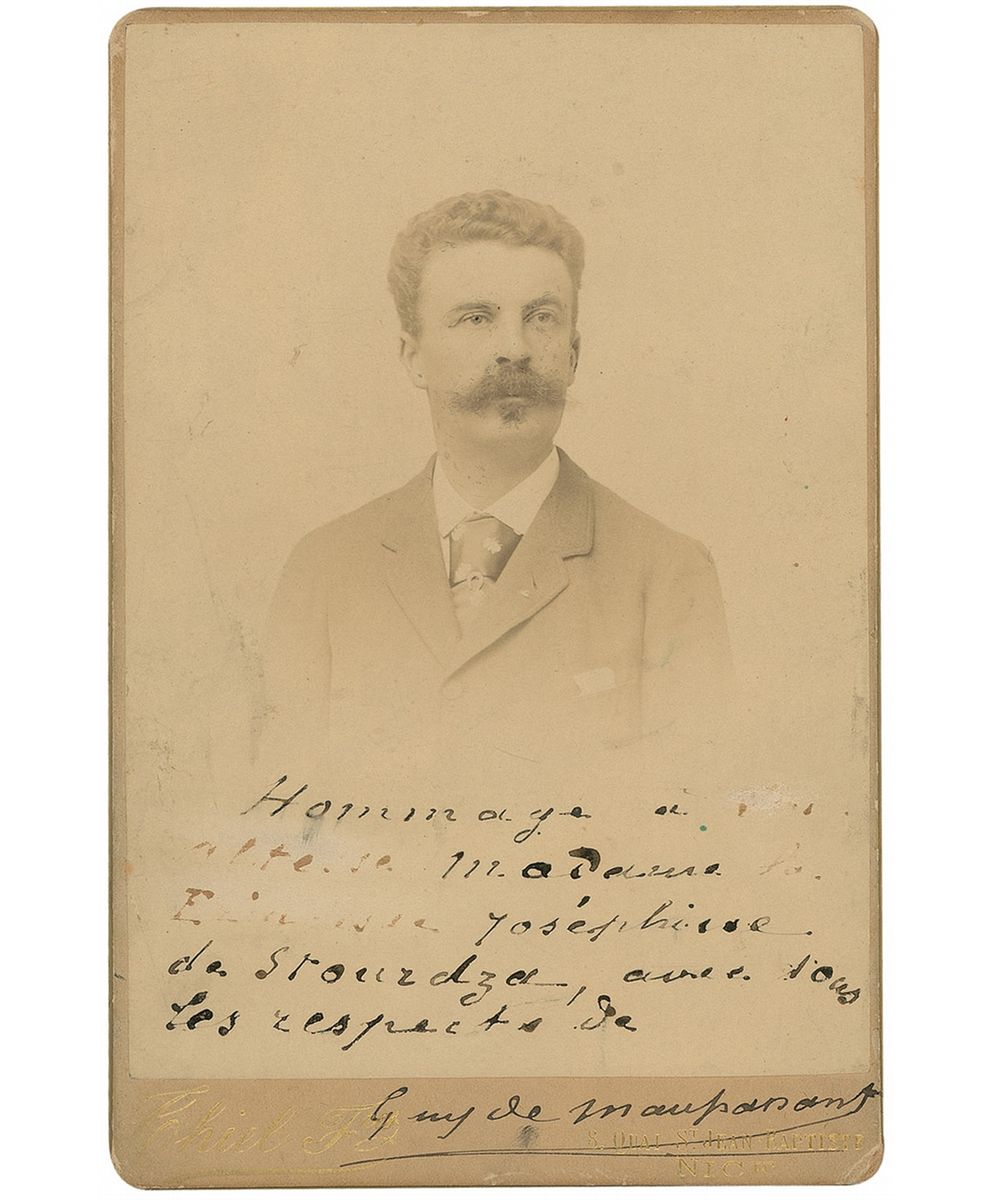 Hommage à
altesse Madame la
Princesse Joséphine
de Stourdza, avec tous
les respects de
Guy de Maupassant
Thiel Fs
5, QUAI ST JEAN BAPTISTE
NICE